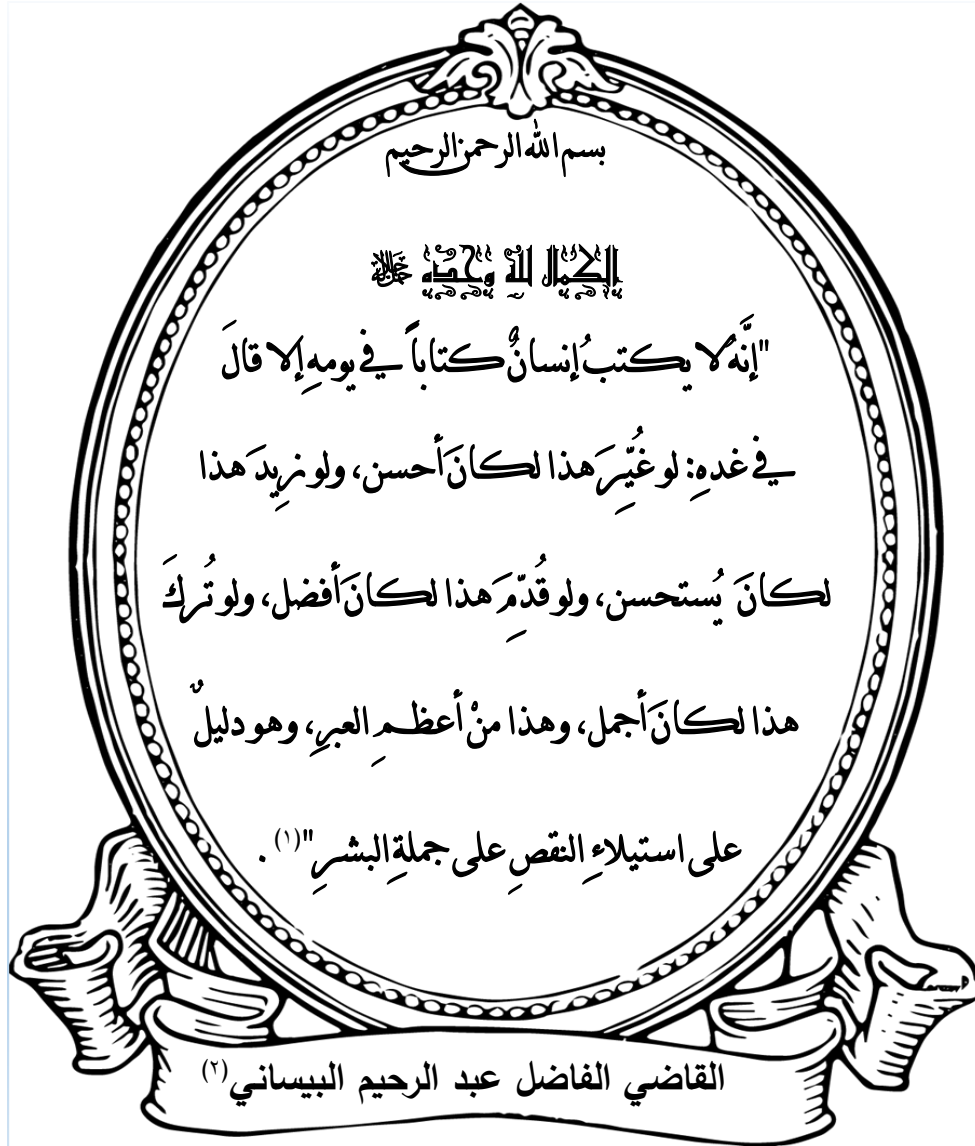 بسم الله الرحمن الرحيم
الكمال لله وحده ﷻ
"إنَّهُ لا يكتبُ إنسانٌ كتاباً في يومهِ إلا قالَ
في غدهِ: لو غُيِّرَ هذا لكانَ أحسن، ولو زِيدَ هذا
لكانَ يُستحسن، ولو قُدِّمَ هذا لكانَ أفضل، ولو تُركَ
هذا لكانَ أجمل، وهذا منْ أعظمِ العبرِ، وهو دليلٌ
على استيلاءِ النقصِ على جملةِ البشرِ"(١) .
القاضي الفاضل عبد الرحيم البيساني(٢)